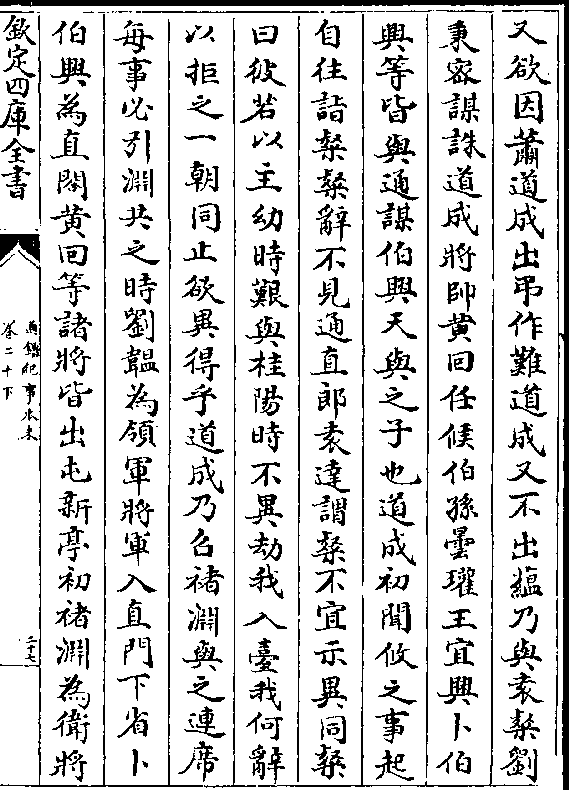 又欲因蕭道成出弔作難道成又不出蘊乃與袁粲劉
秉宻謀誅道成將帥黄回任候伯孫曇瓘王宜興卜伯
興等皆與通謀伯興天與之子也道成初聞攸之事起
自往詣粲粲辭不見通直郎袁達謂粲不宜示異同粲
曰彼若以主幼時艱與桂陽時不異劫我入臺我何辭
以拒之一朝同止欲異得乎道成乃召褚淵與之連席
每事必引淵共之時劉韞為領軍將軍入直門下省卜
伯興為直閤黄回等諸將皆出屯新亭初褚淵為衛將
欽定四庫全書
通鑑紀事本末
卷二十下
二十七